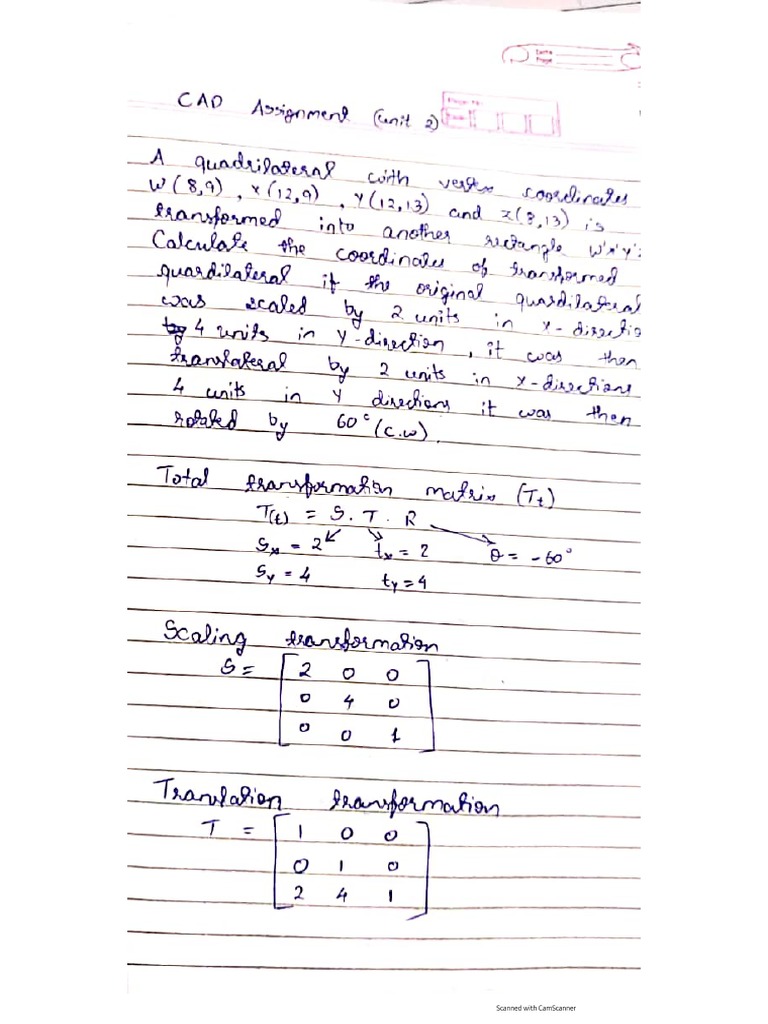 CAD Assignment (unit 2)
A quadrilateral with vertex coordinates
W(8,9), X(12,9), Y(12,13) and Z(8,13) is
transformed into another rectangle W'X'Y'
Calculate the coordinates of transformed
quardilateral if the original quardilateral
was scaled by 2 units in x-directio
4 units in Y-direction, it was then
translateral by 2 units in x-directions
4 units in Y directions it was then
rotated by 60° (C.W).
Total transformation matrix (Tt)
T(t) = S. T. R
Sx = 2 tx = 2 θ = -60°
Sy = 4 ty = 4
Scaling transformation
S = [ 2 0 0
0 4 0
0 0 1 ]
Tranlation transformation
T = [ 1 0 0
0 1 0
2 4 1 ]
Scanned with CamScanner